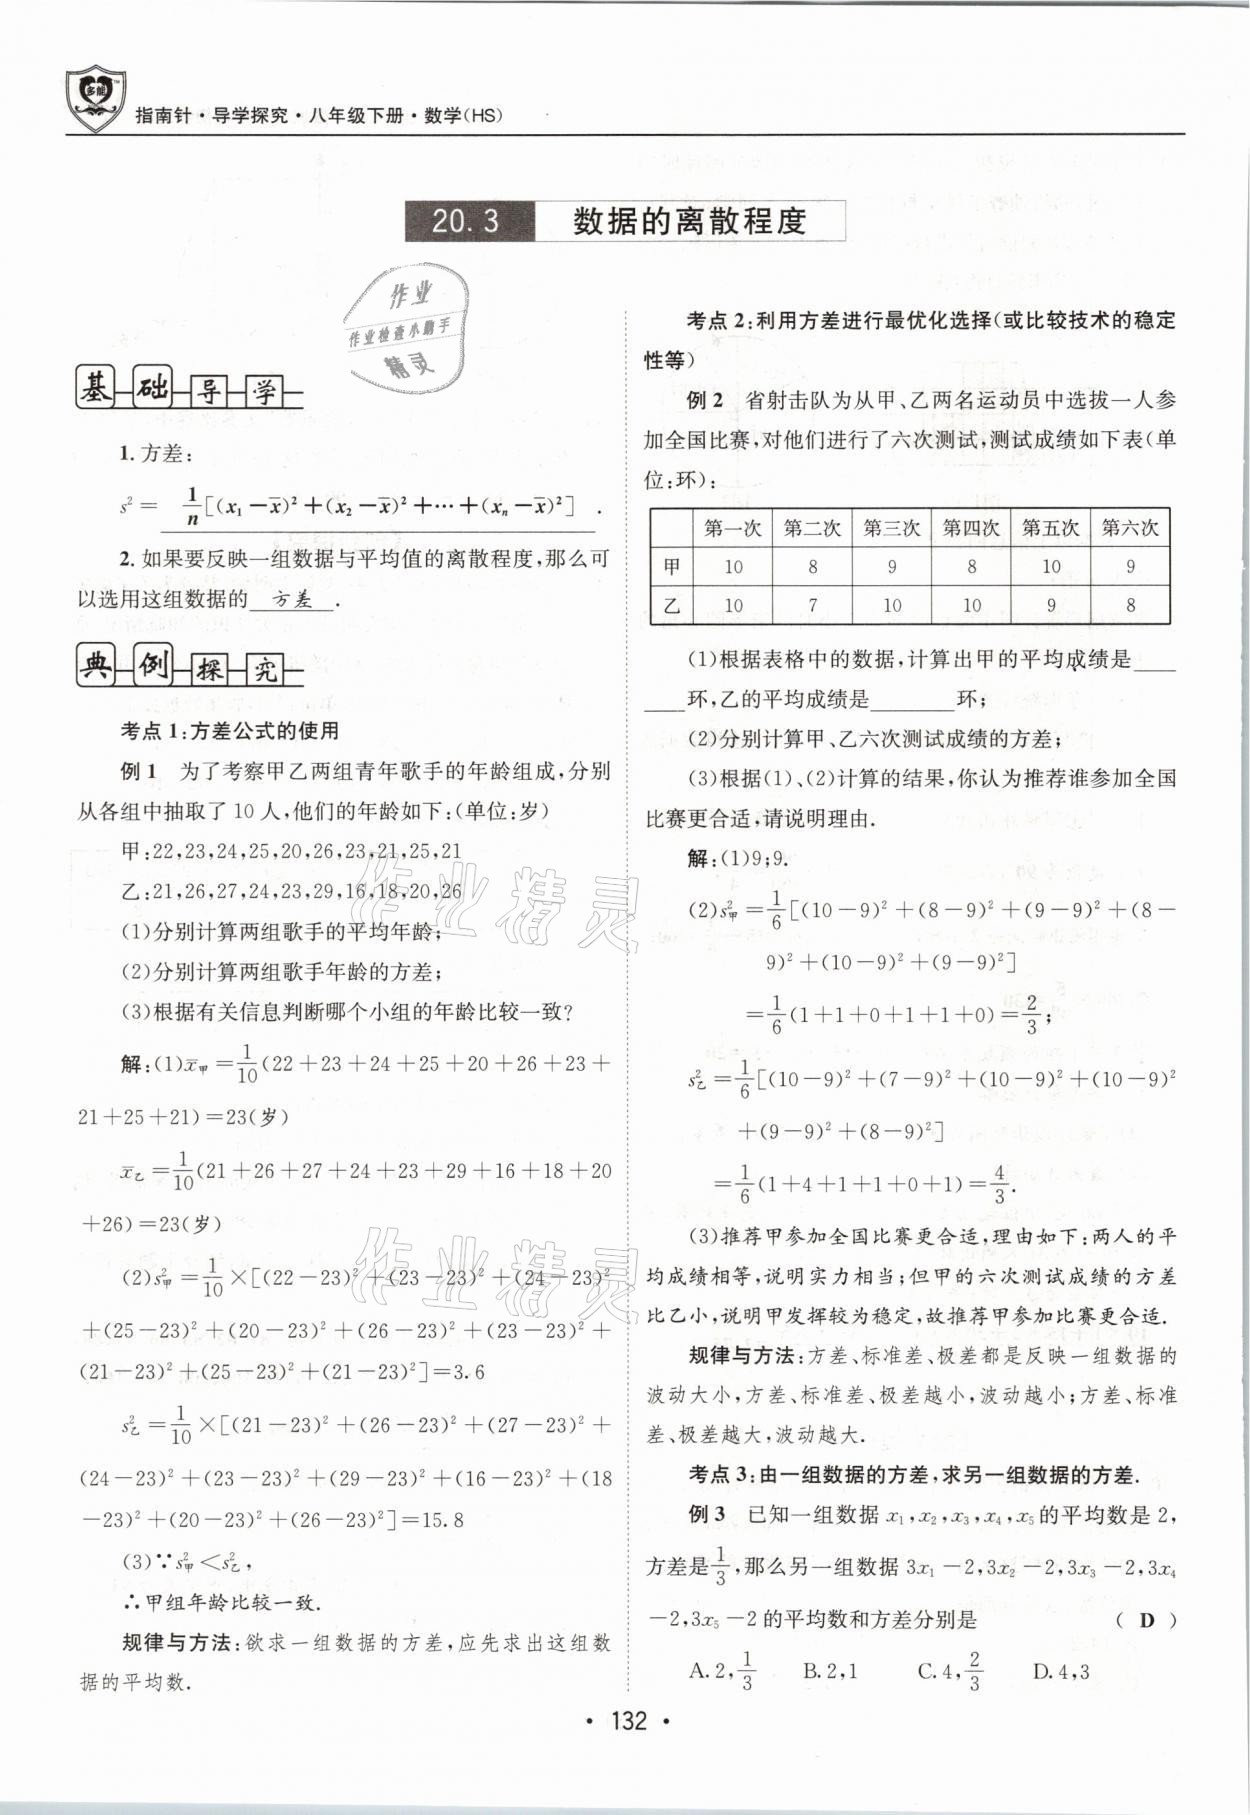 多能
指南针·导学探究·八年级下册·数学(HS)
20.3 数据的离散程度
作业
作业检查小助手
精灵
基础导学
1.方差:
s²= 1/n[(x₁-x̄)²+(x₂-x̄)²+…+(xₙ-x̄)²] .
2.如果要反映一组数据与平均值的离散程度,那么可
以选用这组数据的 方差 .
典例探究
考点1:方差公式的使用
例1 为了考察甲乙两组青年歌手的年龄组成,分别
从各组中抽取了10人,他们的年龄如下:(单位:岁)
甲:22,23,24,25,20,26,23,21,25,21
乙:21,26,27,24,23,29,16,18,20,26
(1)分别计算两组歌手的平均年龄;
(2)分别计算两组歌手年龄的方差;
(3)根据有关信息判断哪个小组的年龄比较一致?
解:(1)x̄甲=1/10(22+23+24+25+20+26+23+
21+25+21)=23(岁)
x̄乙=1/10(21+26+27+24+23+29+16+18+20
+26)=23(岁)
(2)s²甲=1/10×[(22-23)²+(23-23)²+(24-23)²
+(25-23)²+(20-23)²+(26-23)²+(23-23)²+
(21-23)²+(25-23)²+(21-23)²]=3.6
s²乙=1/10×[(21-23)²+(26-23)²+(27-23)²+
(24-23)²+(23-23)²+(29-23)²+(16-23)²+(18
-23)²+(20-23)²+(26-23)²]=15.8
(3)∵s²甲<s²乙,
∴甲组年龄比较一致.
规律与方法:欲求一组数据的方差,应先求出这组数
据的平均数.
考点2:利用方差进行最优化选择(或比较技术的稳定
性等)
例2 省射击队为从甲、乙两名运动员中选拔一人参
加全国比赛,对他们进行了六次测试,测试成绩如下表(单
位:环):
第一次 第二次 第三次 第四次 第五次 第六次
甲 10 8 9 8 10 9
乙 10 7 10 10 9 8
(1)根据表格中的数据,计算出甲的平均成绩是____
____环,乙的平均成绩是________环;
(2)分别计算甲、乙六次测试成绩的方差;
(3)根据(1)、(2)计算的结果,你认为推荐谁参加全国
比赛更合适,请说明理由.
解:(1)9;9.
(2)s²甲=1/6[(10-9)²+(8-9)²+(9-9)²+(8-
9)²+(10-9)²+(9-9)²]
=1/6(1+1+0+1+1+0)=2/3;
s²乙=1/6[(10-9)²+(7-9)²+(10-9)²+(10-9)²
+(9-9)²+(8-9)²]
=1/6(1+4+1+1+0+1)=4/3.
(3)推荐甲参加全国比赛更合适,理由如下:两人的平
均成绩相等,说明实力相当;但甲的六次测试成绩的方差
比乙小,说明甲发挥较为稳定,故推荐甲参加比赛更合适.
规律与方法:方差、标准差、极差都是反映一组数据的
波动大小,方差、标准差、极差越小,波动越小;方差、标准
差、极差越大,波动越大.
考点3:由一组数据的方差,求另一组数据的方差.
例3 已知一组数据x₁,x₂,x₃,x₄,x₅的平均数是2,
方差是1/3,那么另一组数据3x₁-2,3x₂-2,3x₃-2,3x₄
-2,3x₅-2的平均数和方差分别是 ( D )
A.2,1/3 B.2,1 C.4,2/3 D.4,3
作业精灵
作业精灵
·132·